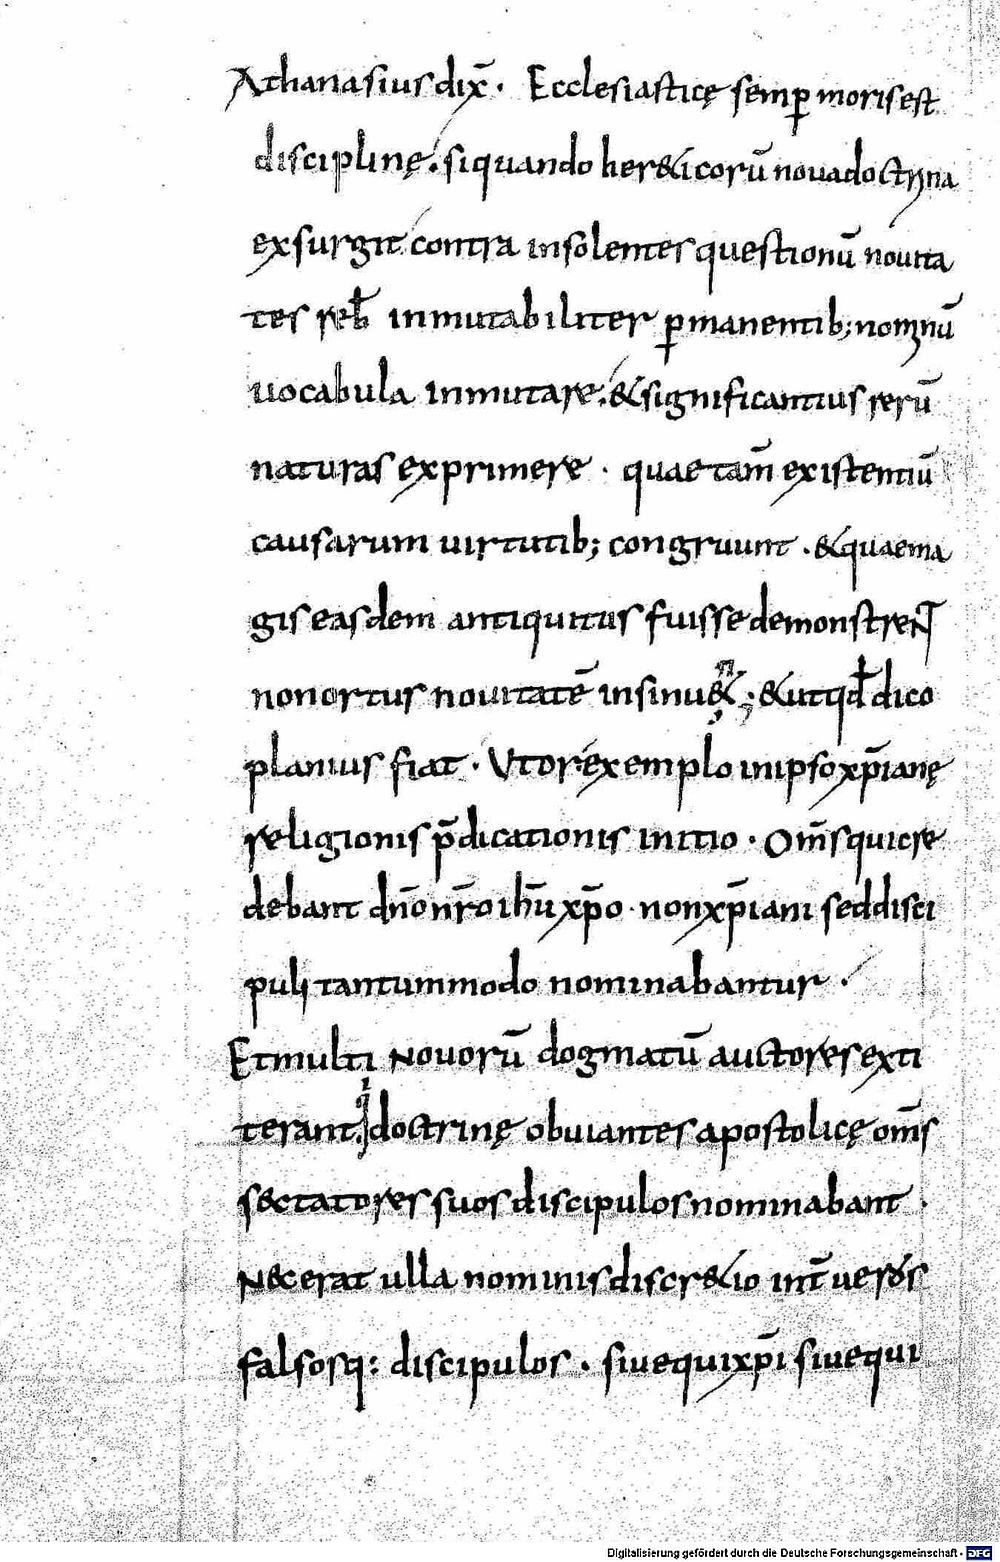 Athanasius dix̄· Ecclesiasticę semꝑ moris est
disciplinę. siquando her&icorū nova doctrina
exsurgit contra insolentes questionū novita
tes reb̄ inmutabiliter ꝑmanentib; nominū
vocabula inmutare. & significantius rerū
naturas exprimere · quae tam̄ existentiū
causarum virtutib; congruunt · & quae ma
gis easdem antiquitus fuisse demonstren̄t
non ortus novitatē insinu&; & ut qd̄ dico
planius fiat · Utor exemplo in ipso xp̄ianę
religionis p̄dicationis initio · Om̄s qui cre
debant dn̄o nr̄o ih̄u xp̄o · non xp̄iani sed disci
puli tantummodo nominabantur ·
Et multi Novorū dogmatū auctores exti
terant doctrinę obviantes apostolicę om̄s
sectatores suos discipulos nominabant ·
Nec erat ulla nominis discr&io int̄ veros
falsosq: discipulos · sive qui xp̄i sive qui
Digitalisierung gefördert durch die Deutsche Forschungsgemeinschaft - DFG